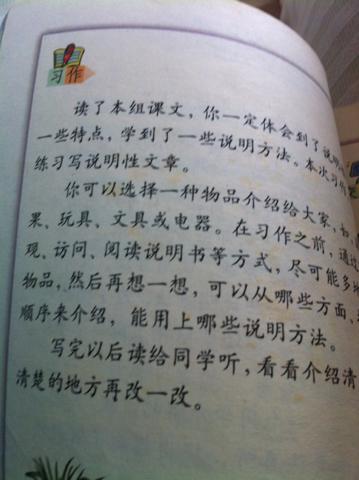 习作
读了本组课文，你一定体会到了说明
一些特点，学到了一些说明方法。本次习作
练习写说明性文章。
你可以选择一种物品介绍给大家，如，
果、玩具、文具或电器。在习作之前，通过
现、访问、阅读说明书等方式，尽可能多地
物品，然后再想一想，可以从哪些方面、
顺序来介绍，能用上哪些说明方法。
写完以后读给同学听，看看介绍清
清楚的地方再改一改。